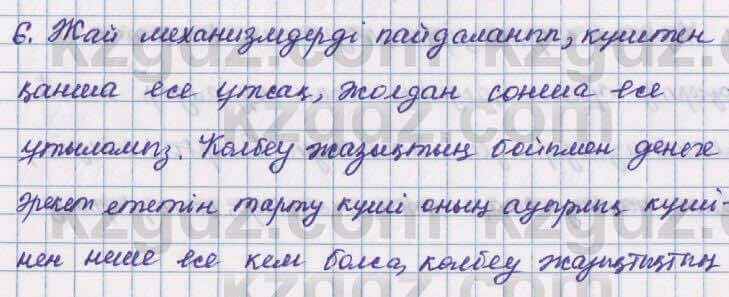 6. Жай механизмдерді пайдаланып, күштен
қанша есе ұтсақ, жолдан сонша есе
ұтыламыз. Көлбеу жазықтың бойымен денеге
әрекет ететін тарту күші оның ауырлық күші-
нен неше есе кем болса, көлбеу жазықтықтың